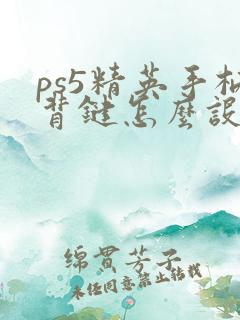 ps5精英手柄
背鍵怎麼設
綿貫芳子
未经同意禁止转载